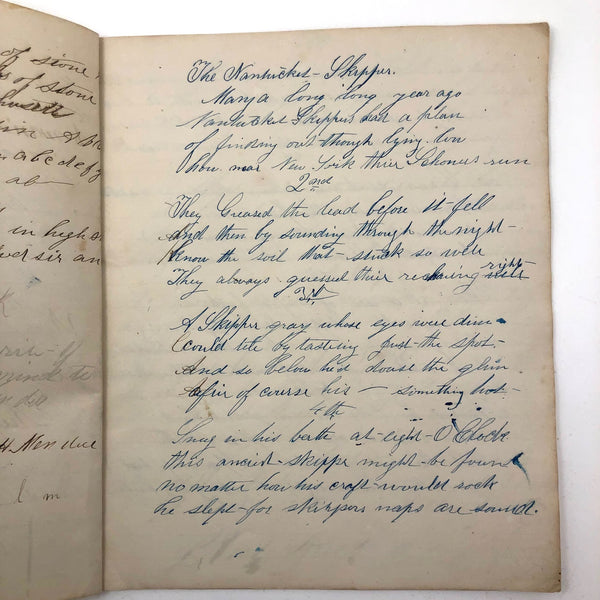 of stone
s of stone
abcdefg
ab
in high s
ver sir an
m
The Nantucket Skipper.
Many a long long year ago
Nantucket Skippers had a plan
of finding out though lying low
how near New York thier Schoners run
2nd
They Greased the lead before it fell
And then by sounding through the night
Know the soil that stuck so well
They always guessed thier reckning right
3rd
A Skipper gray whose eyes were dim
Could tell by tasting just the spot
And so below he'd douse the glim
After of course his something hot
4th
Snug in his berth at eight O Clock
this ancient skipper might be found
no matter how his craft would rock
he slept for skippers naps are sound.